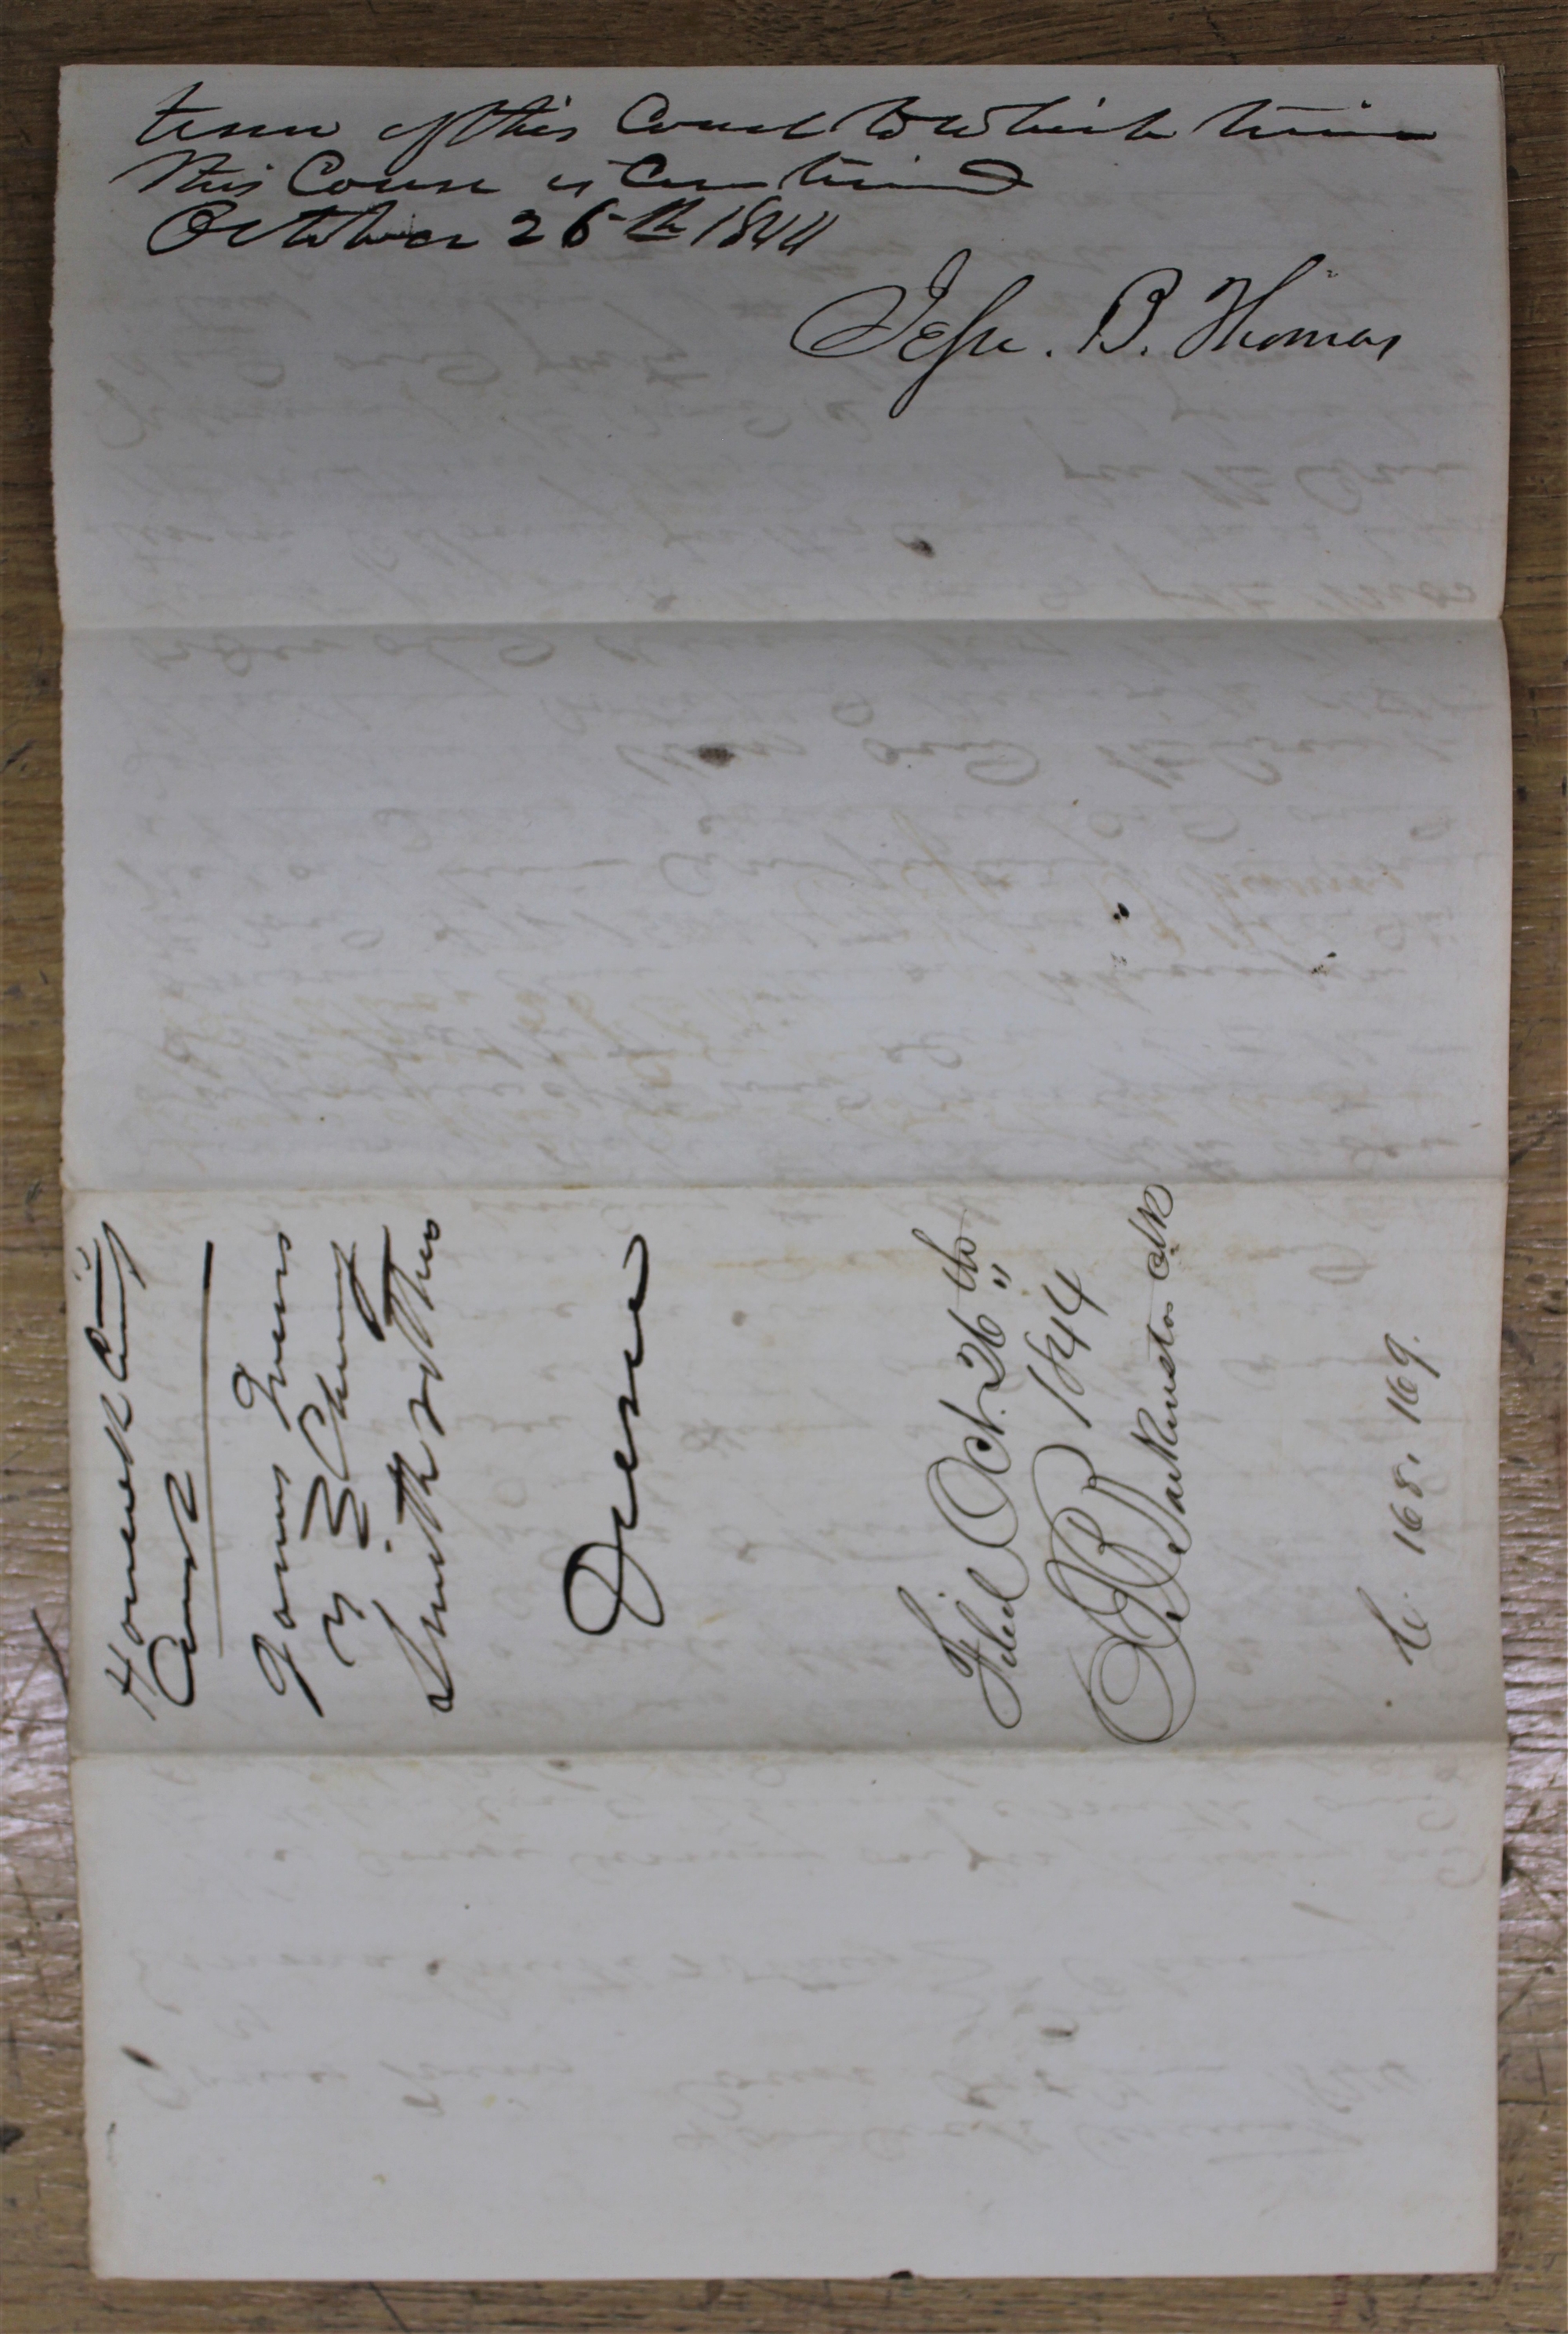 term of this Court to which time
this Cause is Continued
October 26th 1844
Jesse. B. Thomas
Hancock County
Court
James
vs
Smith & others
Filed Oct. 26th
1844
J B Backenstos Clk
168. 169.